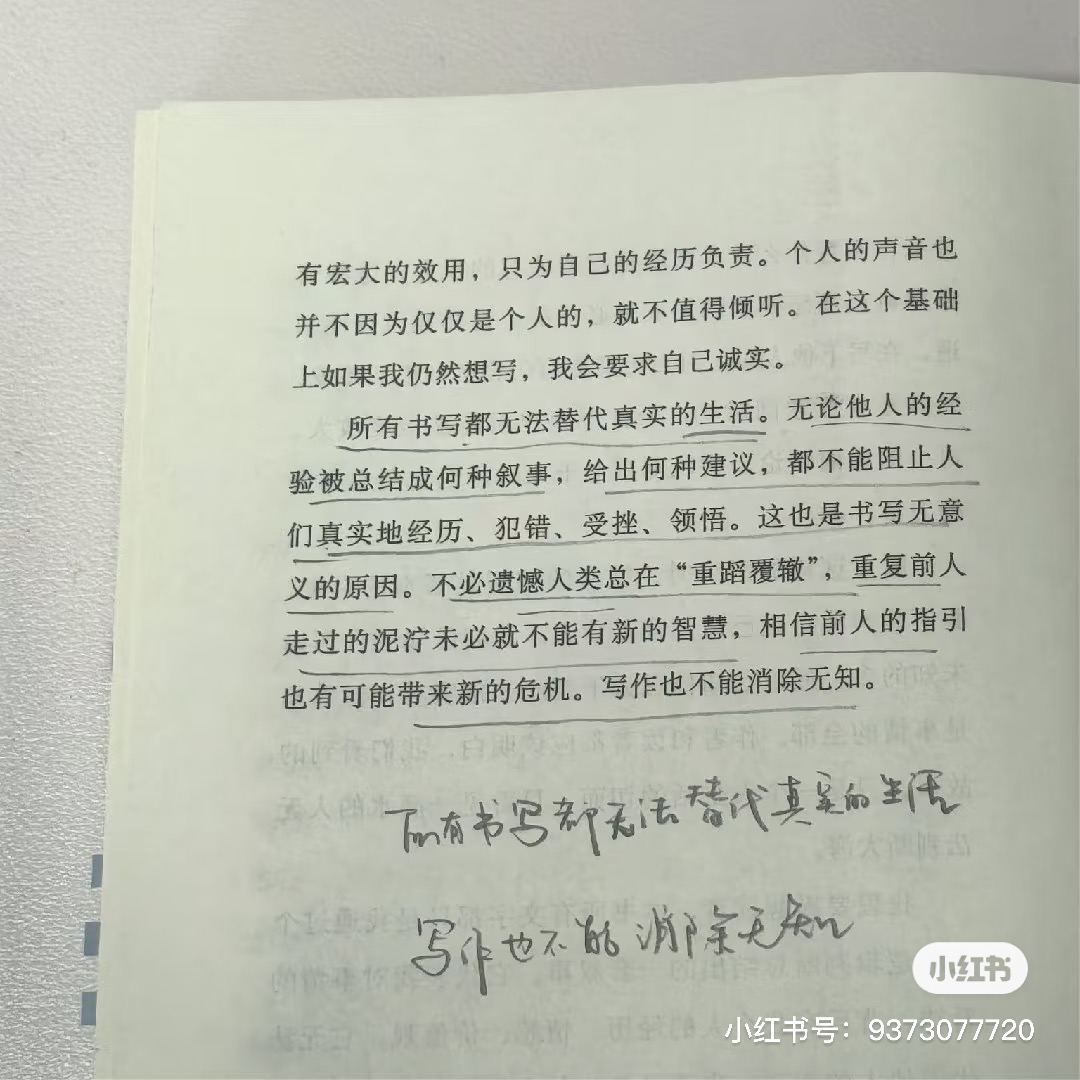 有宏大的效用，只为自己的经历负责。个人的声音也
并不因为仅仅是个人的，就不值得倾听。在这个基础
上如果我仍然想写，我会要求自己诚实。
所有书写都无法替代真实的生活。无论他人的经
验被总结成何种叙事，给出何种建议，都不能阻止人
们真实地经历、犯错、受挫、领悟。这也是书写无意
义的原因。不必遗憾人类总在“重蹈覆辙”，重复前人
走过的泥泞未必就不能有新的智慧，相信前人的指引
也有可能带来新的危机。写作也不能消除无知。
所有书写都无法替代真实的生活
写作也不能消除无知
小红书
小红书号：9373077720